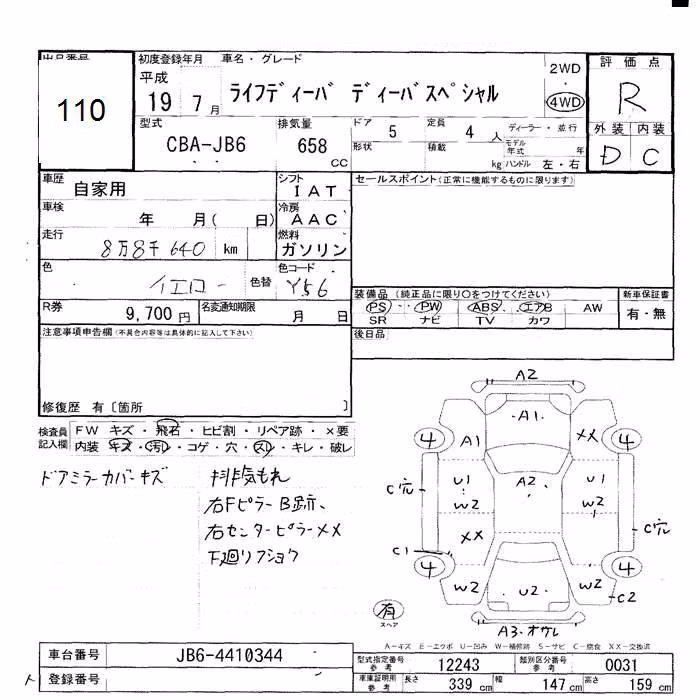 出品番号
110
初度登録年月
平成
19 7 月
車名・グレード
ライフディーバ ディーバスペシャル
2WD
・
4WD
評価点
R
外装 内装
D C
型式
CBA-JB6
排気量
658 CC
ドア 5
定員 4 人
形状
積載 kg
ディーラー・並行
モデル年式 年
ハンドル 左・右
車歴
自家用
シフト
IAT
車検
年 月( 日)
冷房
AAC
走行
8万8千640 km
燃料
ガソリン
色
イエロー
色替
色コード
Y56
R券
9,700 円
名変通知期限
月 日
セールスポイント(正常に機能するものに限ります)
装備品 (純正品に限り○をつけてください)
PS・PW・ABS・エアB AW
SR ナビ TV カワ
新車保証書
有・無
後日品
注意事項申告欄(不具合内容等は具体的に記入して下さい)
修復歴 有〔箇所 〕
検査員記入欄
FW キズ・飛石・ヒビ割・リペア跡・×要
内装 キズ・汚レ・コゲ・穴・スレ・キレ・破レ
ドアミラーカバーキズ
排気もれ
右Fピラー B跡、
右センターピラーXX
下廻リフショク
A2
A1
4 A1 XX 4
U1 A2 U1
C穴 W2 W2
XX C穴
C1
4 4
W2 U2 W2
C2
有
スペア
A3・オクレ
A-キズ E-エクボ U-凹み W-補修跡 S-サビ C-腐食 XX-交換済
車台番号
JB6-4410344
登録番号
型式指定番号 参考
12243
類別区分番号 参考
0031
車庫証明用 参考
長さ 339 cm
幅 147 cm
高さ 159 cm